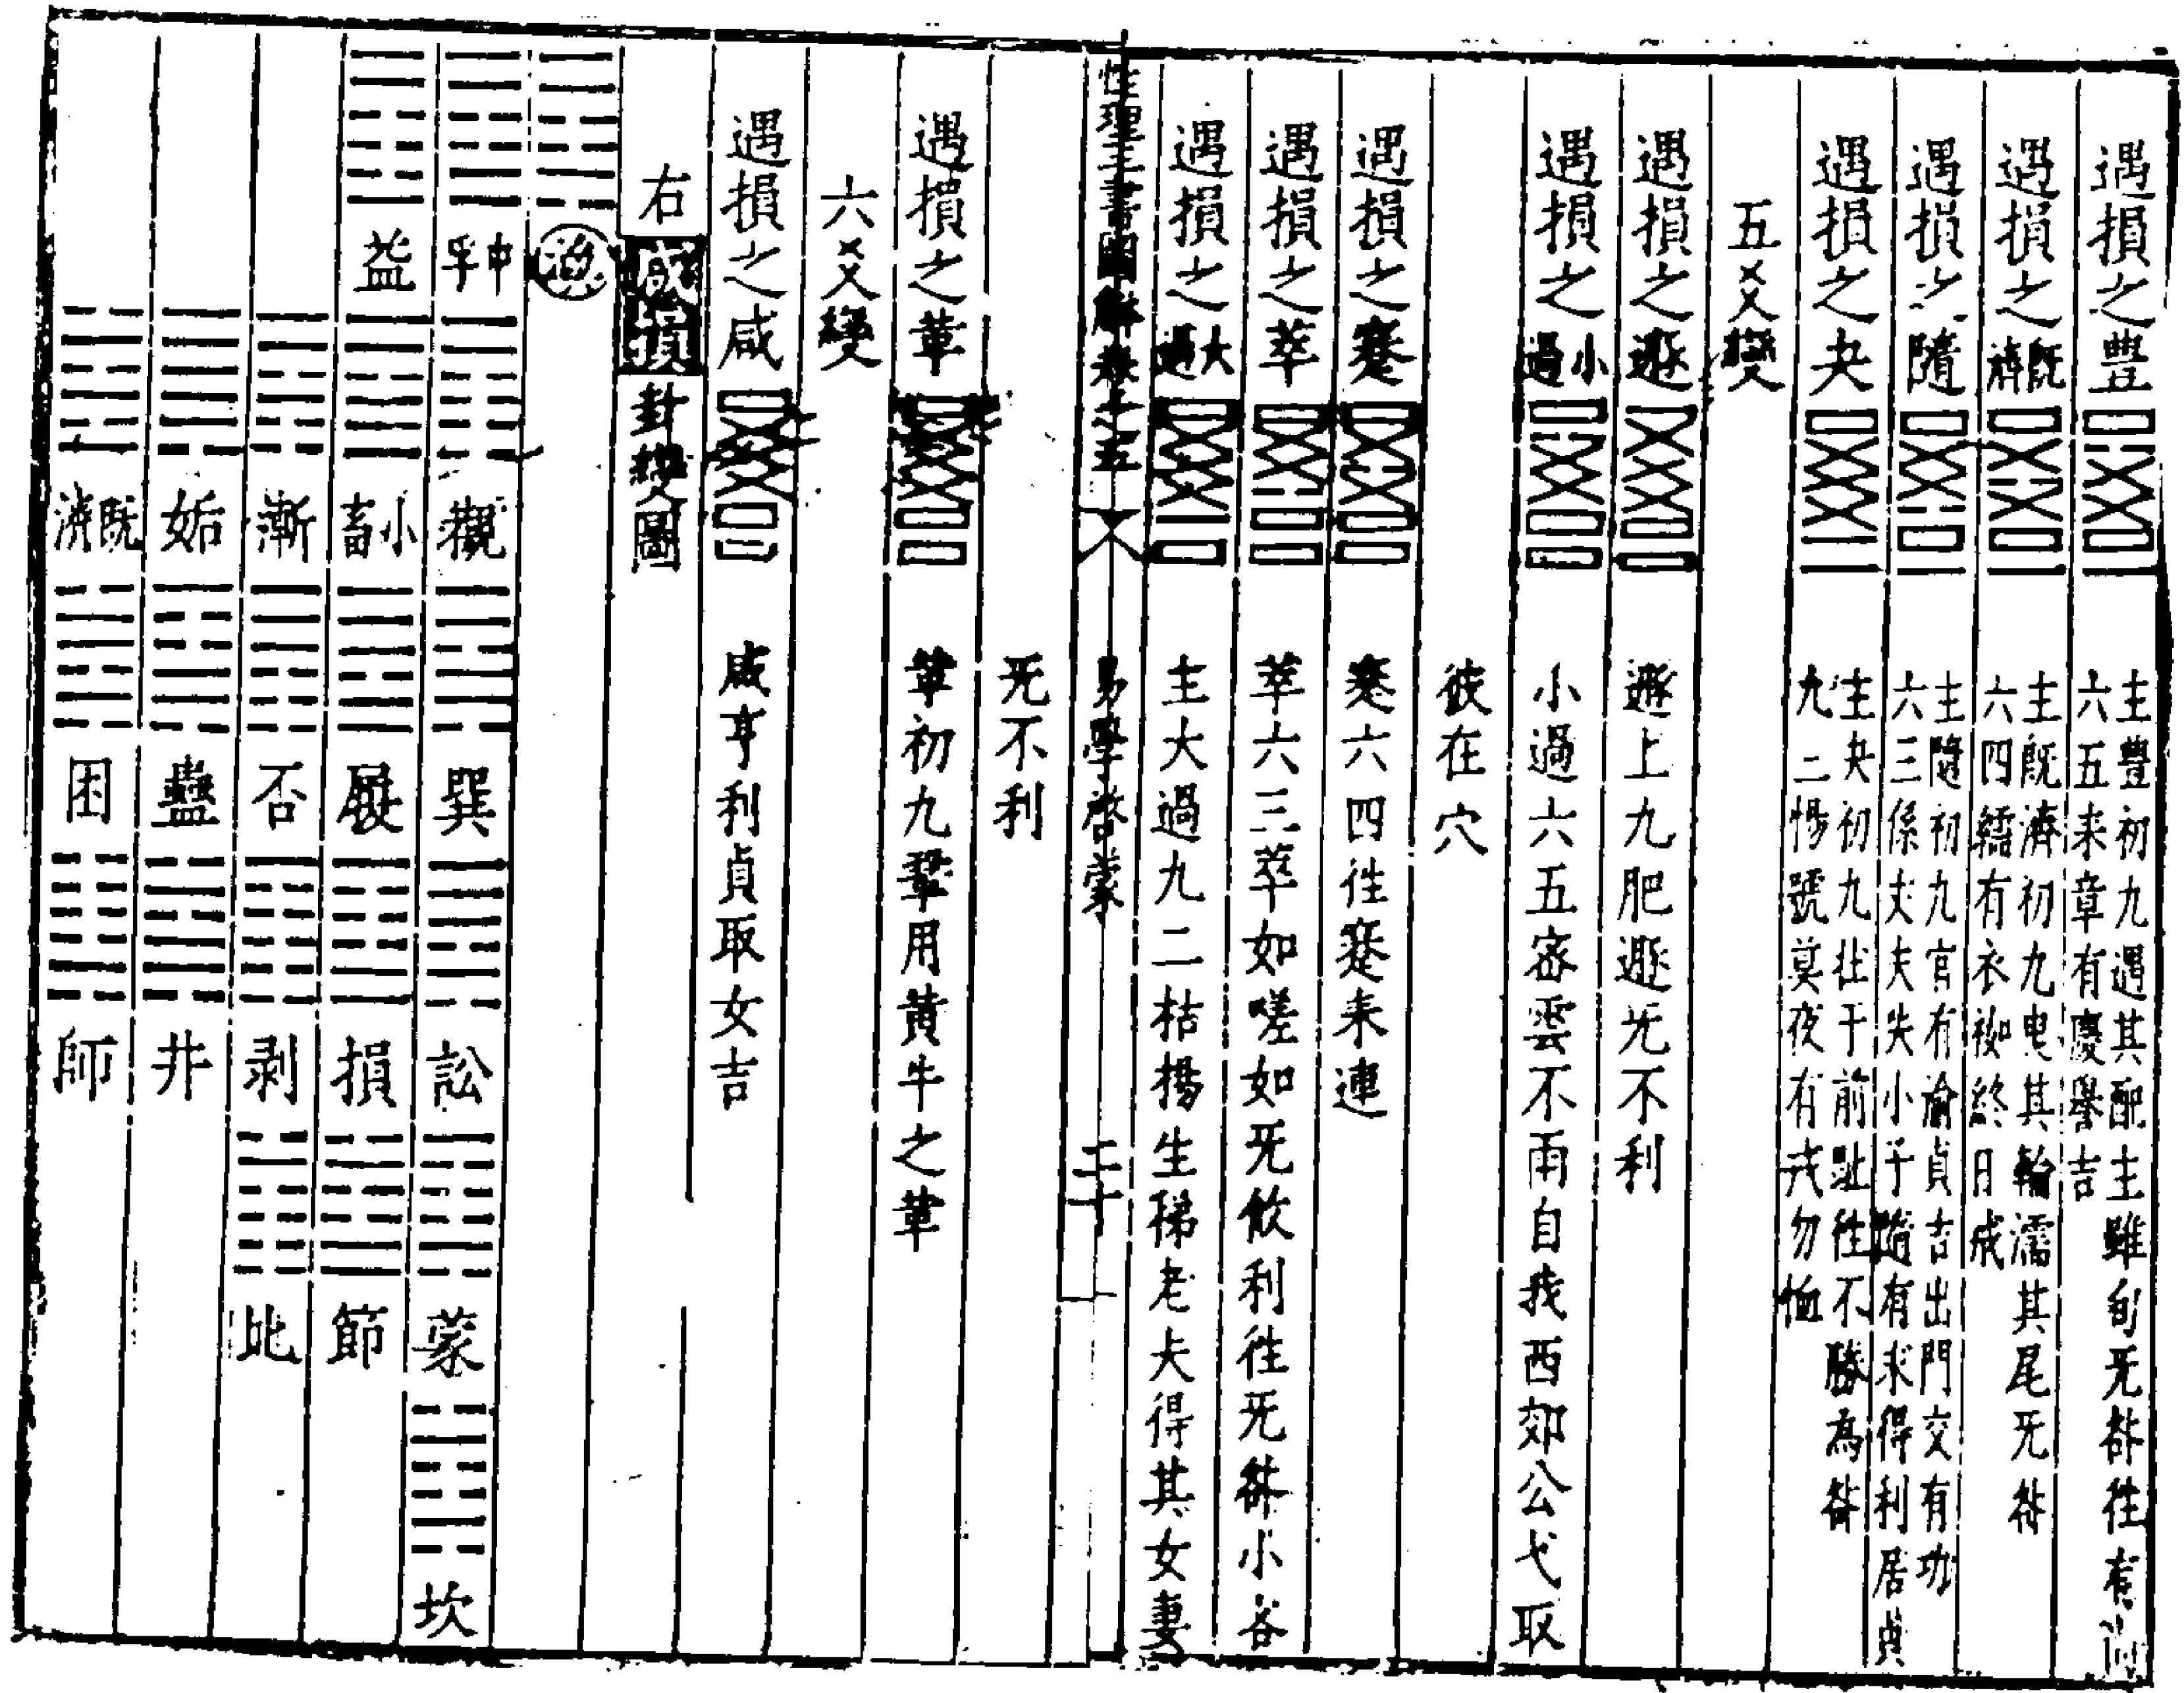 遇損之豊 主豊初九遇其配主雖旬旡咎徃有尚
六五来章有慶譽吉
遇損之既濟 主既濟初九曳其輪濡其尾旡咎
六四繻有衣袽終日戒
遇損之隨 主隨初九官有渝貞吉出門交有功
六三係丈夫失小子隨有求得利居貞
遇損之夬 主夬初九壮于前趾徃不勝為咎
九二惕號莫夜有戎勿恤
五爻變
遇損之遯 遯上九肥遯旡不利
遇損之小過 小過六五密雲不雨自我西郊公弋取
彼在穴
遇損之蹇 蹇六四徃蹇来連
遇損之萃 萃六三萃如嗟如旡攸利徃旡咎小吝
遇損之大過 主大過九二枯楊生稊老夫得其女妻
性理三書圖解卷之五 易學啓蒙 二十
旡不利
遇損之革 革初九鞏用黃牛之革
六爻變
遇損之咸 咸亨利貞取女吉
右咸損卦變圖
渙
中孚 觀 巽 訟 蒙 坎
益 小畜 履 損 節
漸 否 剥 比
姤 蠱 井
既濟 困 師